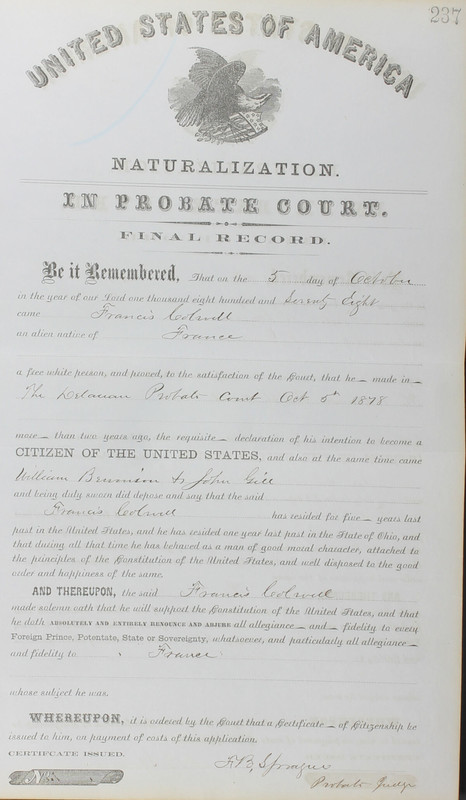 237
UNITED STATES OF AMERICA
NATURALIZATION.
IN PROBATE COURT.
FINAL RECORD.
Be it Remembered, That on the 5 day of October
in the year of our Lord one thousand eight hundred and Seventy Eight
came Francis Colwell
an alien native of France
a free white person, and proved, to the satisfaction of the Court, that he made in
The Delaware Probate Court Oct 5th 1878
more than two years ago, the requisite declaration of his intention to become a
CITIZEN OF THE UNITED STATES, and also at the same time came
William & John Gill
and being duly sworn did depose and say that the said
Francis Colwell has resided for five years last
past in the United States, and he has resided one year last past in the State of Ohio, and
that during all that time he has behaved as a man of good moral character, attached to
the principles of the Constitution of the United States, and well disposed to the good
order and happiness of the same.
AND THEREUPON, the said Francis Colwell
made solemn oath that he will support the Constitution of the United States, and that
he doth ABSOLUTELY AND ENTIRELY RENOUNCE AND ABJURE all allegiance and fidelity to every
Foreign Prince, Potentate, State or Sovereignty, whatsoever, and particularly all allegiance
and fidelity to France
whose subject he was.
WHEREUPON, it is ordered by the Court that a Certificate of Citizenship be
issued to him, on payment of costs of this application.
CERTIFICATE ISSUED.
No.
F. B. Sprague
Probate Judge